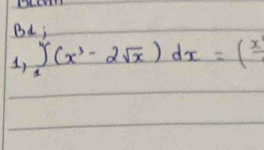 Bd;
1, ∫₁⁴ (x³ - 2√x) dx = (x